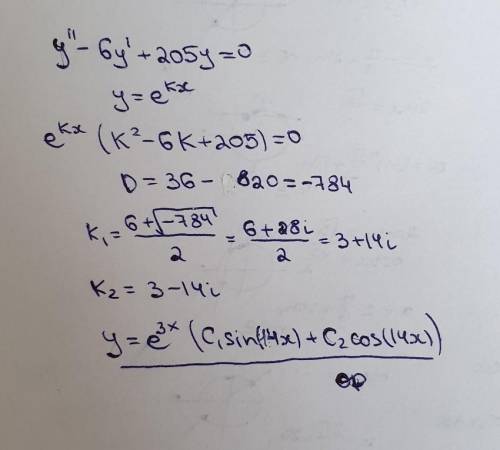 y'' - 6y' + 205y = 0
y = e^{kx}
e^{kx} (k² - 6k + 205) = 0
D = 36 - 820 = -784
k₁ = \frac{6 + \sqrt{-784}}{2} = \frac{6 + 28i}{2} = 3 + 14i
k₂ = 3 - 14i
y = e^{3x} (C₁ sin(14x) + C₂ cos(14x))